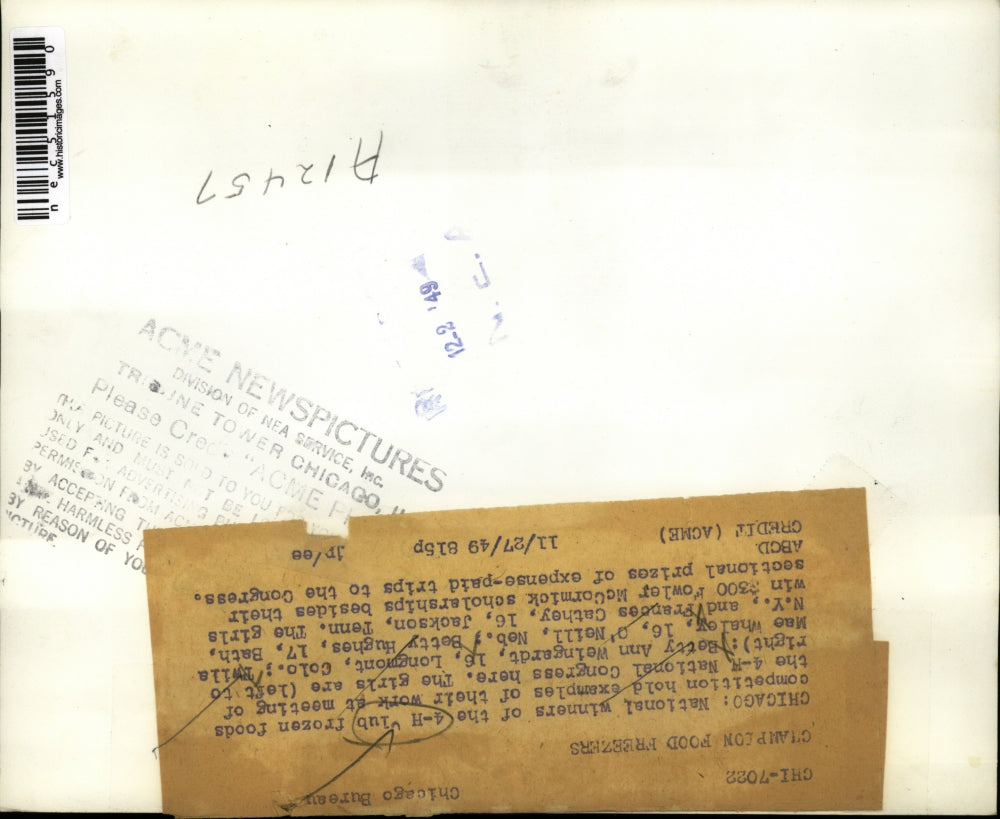 n e c 5 1 5 9 0
www.historicimages.com
A12457
12-2 '49
ACME NEWSPICTURES
DIVISION OF NEA SERVICE, INC.
TRIBUNE TOWER CHICAGO,
Please Credit "ACME
PICTURE IS SOLD TO YOU
ONLY AND MUST NOT BE
USED FOR ADVERTISING
PERMISSION FROM
BY ACCEPTING
HARMLESS
BY REASON OF YOU
PICTURE.
Chicago Bureau
CHI-7022
CHAMPION FOOD FREEZERS
CHICAGO: National winners of the 4-H Club frozen foods
competition hold examples of their work at meeting of
the 4-H National Congress here. The girls are (left to
right): Betty Ann Weingardt, 16, Longmont, Colo.; Twila
Mae Whaley, 16, O'Neill, Neb.; Betty Hughes, 17, Bath,
N.Y., and Frances Cathey, 16, Jackson, Tenn. The girls
win $300 Fowler McCormick scholarships besides their
sectional prizes of expense-paid trips to the Congress.
ABCD
CREDIT (ACME) 11/27/49 815p jr/ee